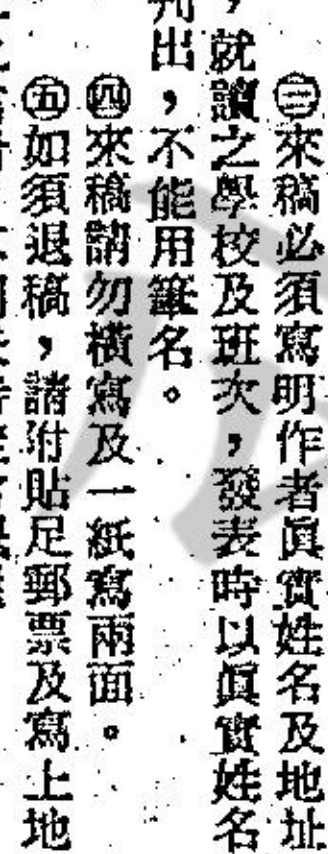 ㊂來稿必須寫明作者眞實姓名及地址
，就讀之學校及班次，發表時以眞實姓名
刋出，不能用筆名。
㊃來稿請勿橫寫及一紙寫兩面。
㊄如須退稿，請附貼足郵票及寫上地